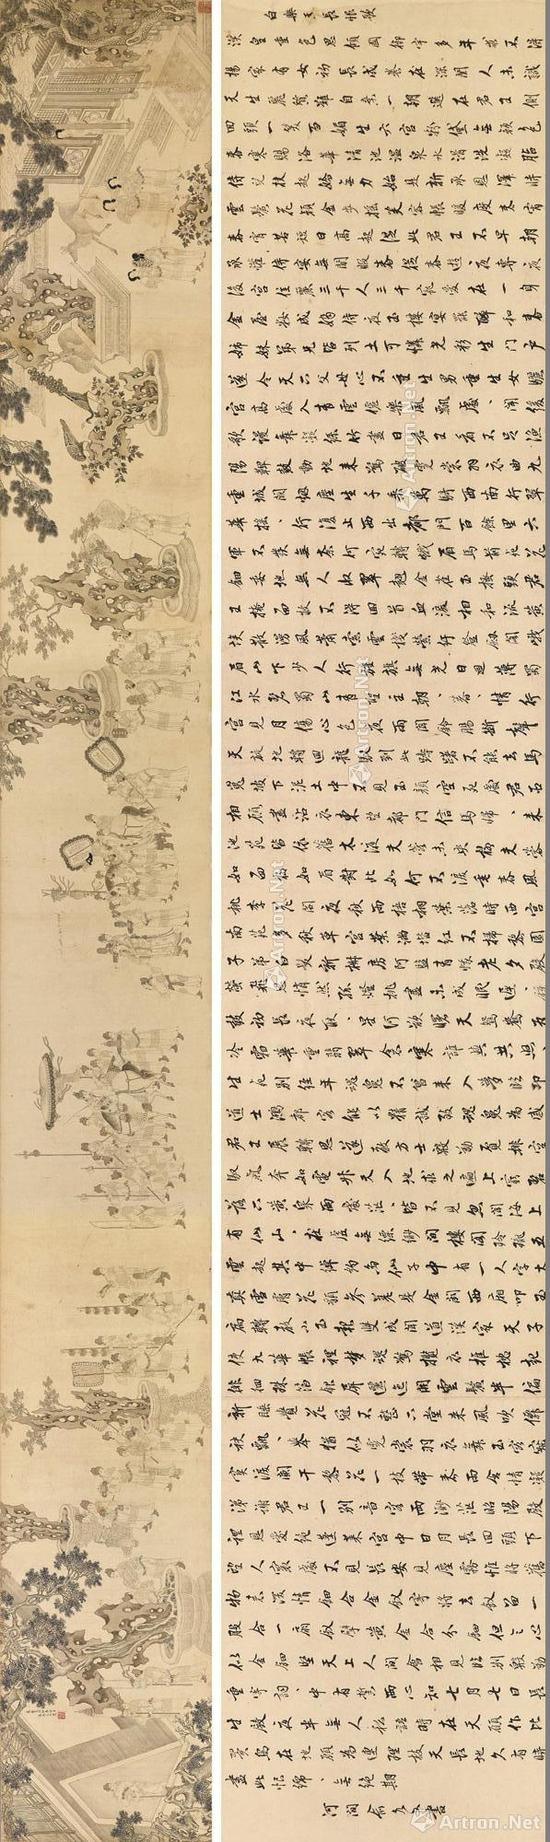 白樂天長恨歌
漢皇重色思傾國御宇多年求不得
楊家有女初長成養在深閨人未識
天生麗質難自棄一朝選在君王側
回頭一笑百媚生六宮粉黛無顏色
春寒賜浴華清池溫泉水滑洗凝脂
侍兒扶起嬌無力始是新承恩澤時
雲鬢花顏金步搖芙蓉帳暖度春宵
春宵苦短日高起從此君王不早朝
承歡侍宴無閒暇春從春遊夜專夜
後宮佳麗三千人三千寵愛在一身
金屋妝成嬌侍夜玉樓宴罷醉和春
姊妹弟兄皆列土可憐光彩生門戶
遂令天下父母心不重生男重生女驪
宮高處入青雲仙樂風飄處、聞緩
歌謾舞凝絲竹盡日君王看不足漁
陽鼙鼓動地來驚破霓裳羽衣曲九
重城闕煙塵生千乘萬騎西南行翠
華搖、行復止西出都門百餘里六
軍不發無奈何宛轉蛾眉馬前死花
鈿委地無人收翠翹金雀玉搔頭君
王掩面救不得回首血淚相和流黃
埃散漫風蕭索雲棧縈紆登劍閣峨
眉山下少人行旌旗無光日色薄蜀
江水碧蜀山青聖主朝、暮、情行
宮見月傷心色夜雨聞鈴腸斷聲
天旋地轉迴龍馭到此躊躇不能去馬
嵬坡下泥土中不見玉顏空死處君臣
相顧盡沾衣東望都門信馬歸、來
池苑皆依舊太液芙蓉未央柳芙蓉
如面柳如眉對此如何不淚垂春風
桃李花開夜秋雨梧桐葉落時西宮
南苑多秋草宮葉滿階紅不掃梨園
子弟白髮新椒房阿監青娥老夕殿
螢飛思悄然孤燈挑盡未成眠遲、鐘
鼓初長夜耿、星河欲曙天鴛鴦瓦
冷霜華重翡翠衾寒誰與共悠、
生死別經年魂魄不曾來入夢臨邛
道士鴻都客能以精誠致魂魄為感
君王展轉思遂教方士殷勤覓排空
馭氣奔如電升天入地求之遍上窮碧
落下黃泉兩處茫、皆不見忽聞海上
有仙山、在虛無縹緲間樓閣玲瓏五
雲起其中綽約多仙子中有一人字太
真雪膚花貌參差是金闕西廂叩玉
扃轉教小玉報雙成聞道漢家天子
使九華帳裡夢魂驚攬衣推枕起
徘徊珠箔銀屏邐迤開雲鬢半偏
新睡覺花冠不整下堂來風吹仙
袂飄、舉猶似霓裳羽衣舞玉容寂
寞淚闌干梨花一枝帶春雨含情凝
涕謝君王一別音容兩渺茫昭陽殿
裡恩愛絕蓬萊宮中日月長回頭下
望人寰處不見長安見塵霧惟將舊
物表深情鈿合金釵寄將去釵留一
股合一扇釵擘黃金合分鈿但令心
似金鈿堅天上人間會相見臨別殷勤
重寄詞、中有誓兩心知七月七日長
生殿夜半無人私語時在天願作比
翼鳥在地願為連理枝天長地久有時
盡此恨綿、無絕期
河間俞書
Artron.Net